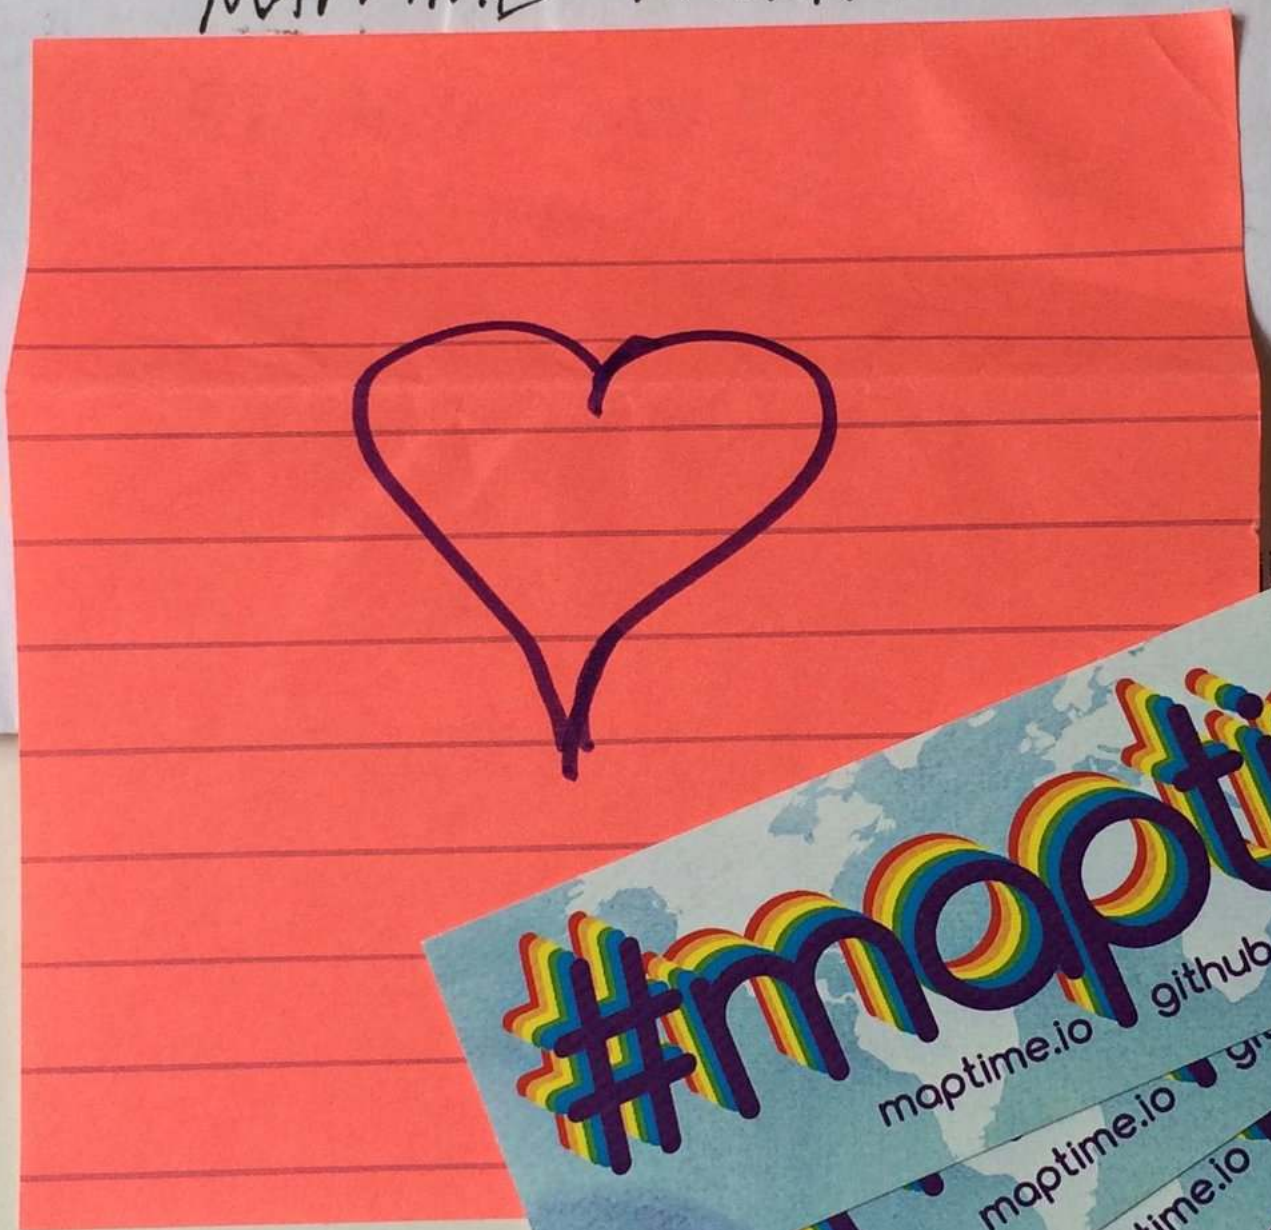 #mapti
maptime.io github
maptime.io
time.io